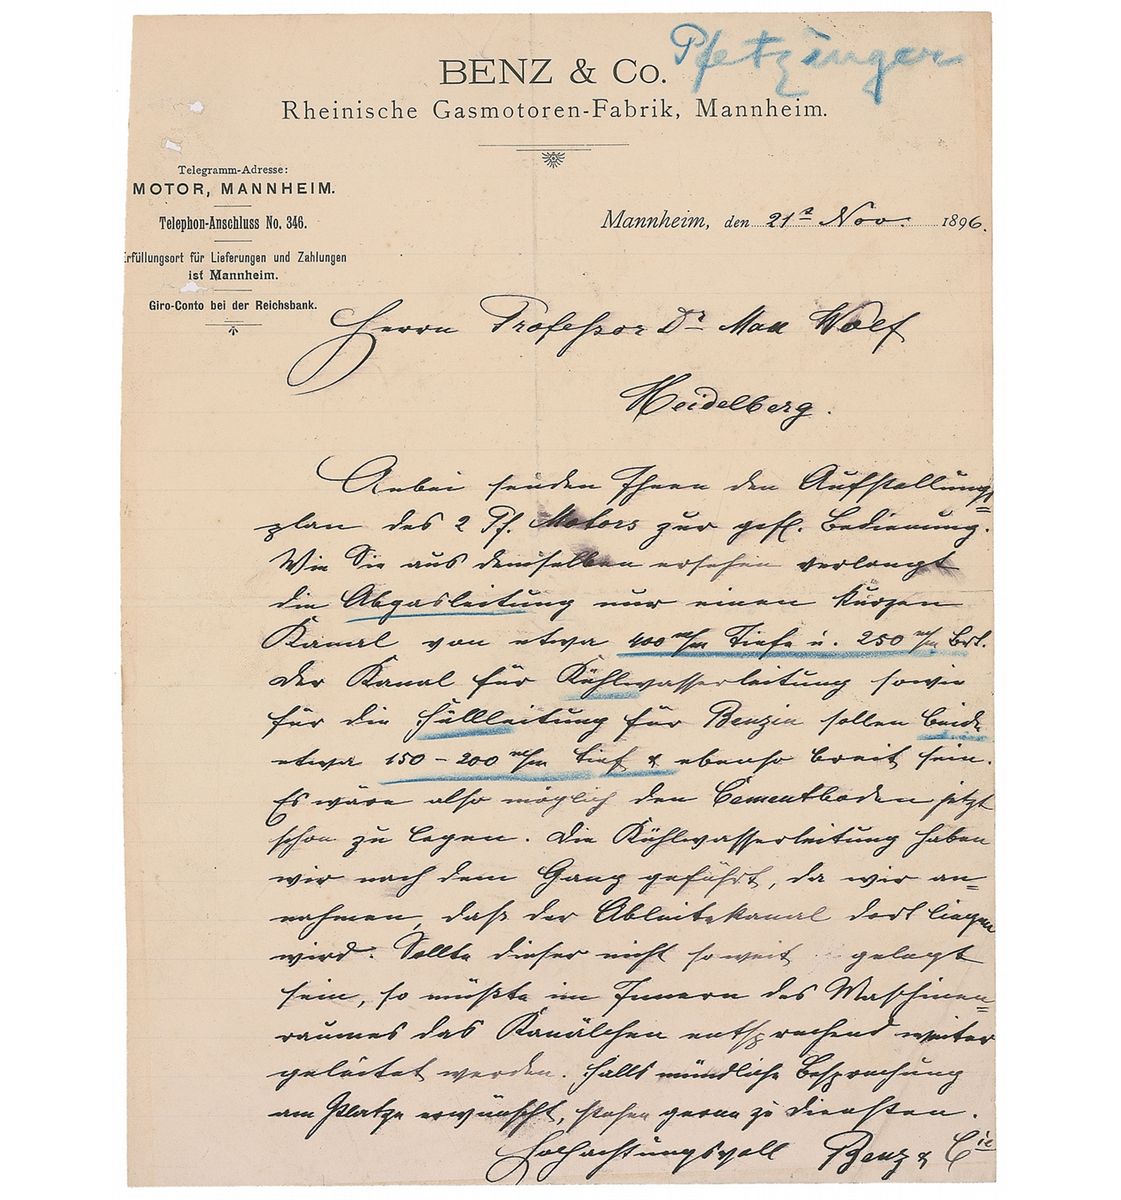 Pfetzinger
BENZ & Co.
Rheinische Gasmotoren-Fabrik, Mannheim.
Telegramm-Adresse:
MOTOR, MANNHEIM.
Telephon-Anschluss No. 346.
Erfüllungsort für Lieferungen und Zahlungen
ist Mannheim.
Giro-Conto bei der Reichsbank.
Mannheim, den 21t Nov. 1896.
Herrn Professor Dr Max Wolf
Heidelberg.
Anbei senden Ihnen den Aufstellungs=
plan des 2 Pf. Motors zur gefl. Bedienung.
Wie Sie aus demselben ersehen verlangt
die Abgasleitung nur einen kurzen
Kanal von etwa 400 m/m Tiefe u. 250 m/m Brt.
Der Kanal für Kühlwasserleitung sowie
für die Füllleitung für Benzin sollen beide
etwa 150 – 200 m/m tief & ebenso breit sein.
Es wäre also möglich den Cementboden jetzt
schon zu legen. Die Kühlwasserleitung haben
wir nach dem Gang geführt, da wir an=
nahmen, daß der Ableitekanal dort liegen
wird. Sollte dieser nicht soweit gelegt
sein, so müßte im Innern des Maschinen=
raumes das Kanälchen entsprechend weiter
geleitet werden. Falls mündliche Besprechung
am Platze erwünscht, stehen gerne zu Diensten.
Hochachtungsvoll Benz & Cie